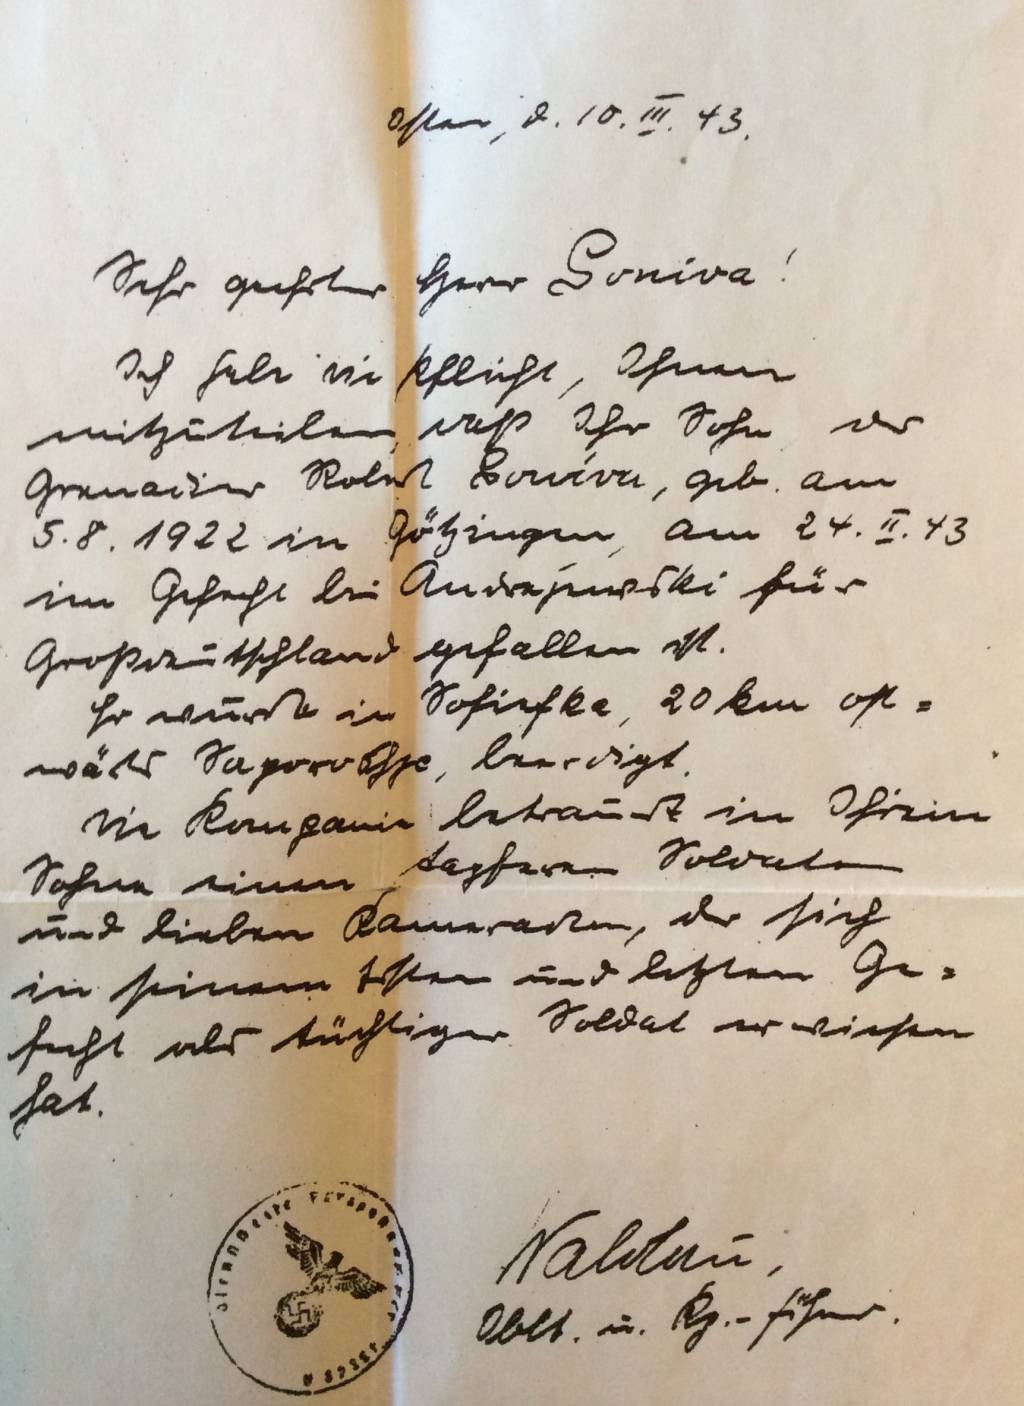 Osten, d. 10. III. 43.
Sehr geehrter Herr Goniva!
Ich habe die Pflicht, Ihnen
mitzuteilen, daß Ihr Sohn der
Grenadier Robert Goniva, geb. am
5.8.1922 in Götzingen, am 24. II. 43
im Gefecht bei Andrejewski für
Großdeutschland gefallen ist.
Er wurde in Sofiefka, 20 km ost=
wärts Saporoshje, beerdigt.
Die Kompanie betrauert in Ihrem
Sohne einen tapferen Soldaten
und lieben Kameraden, der sich
in seinem ersten und letzten Ge=
fecht als tüchtiger Soldat erwiesen
hat.
Dienststelle Feldpost
Waldau,
Oblt. u. Kp.-führer.